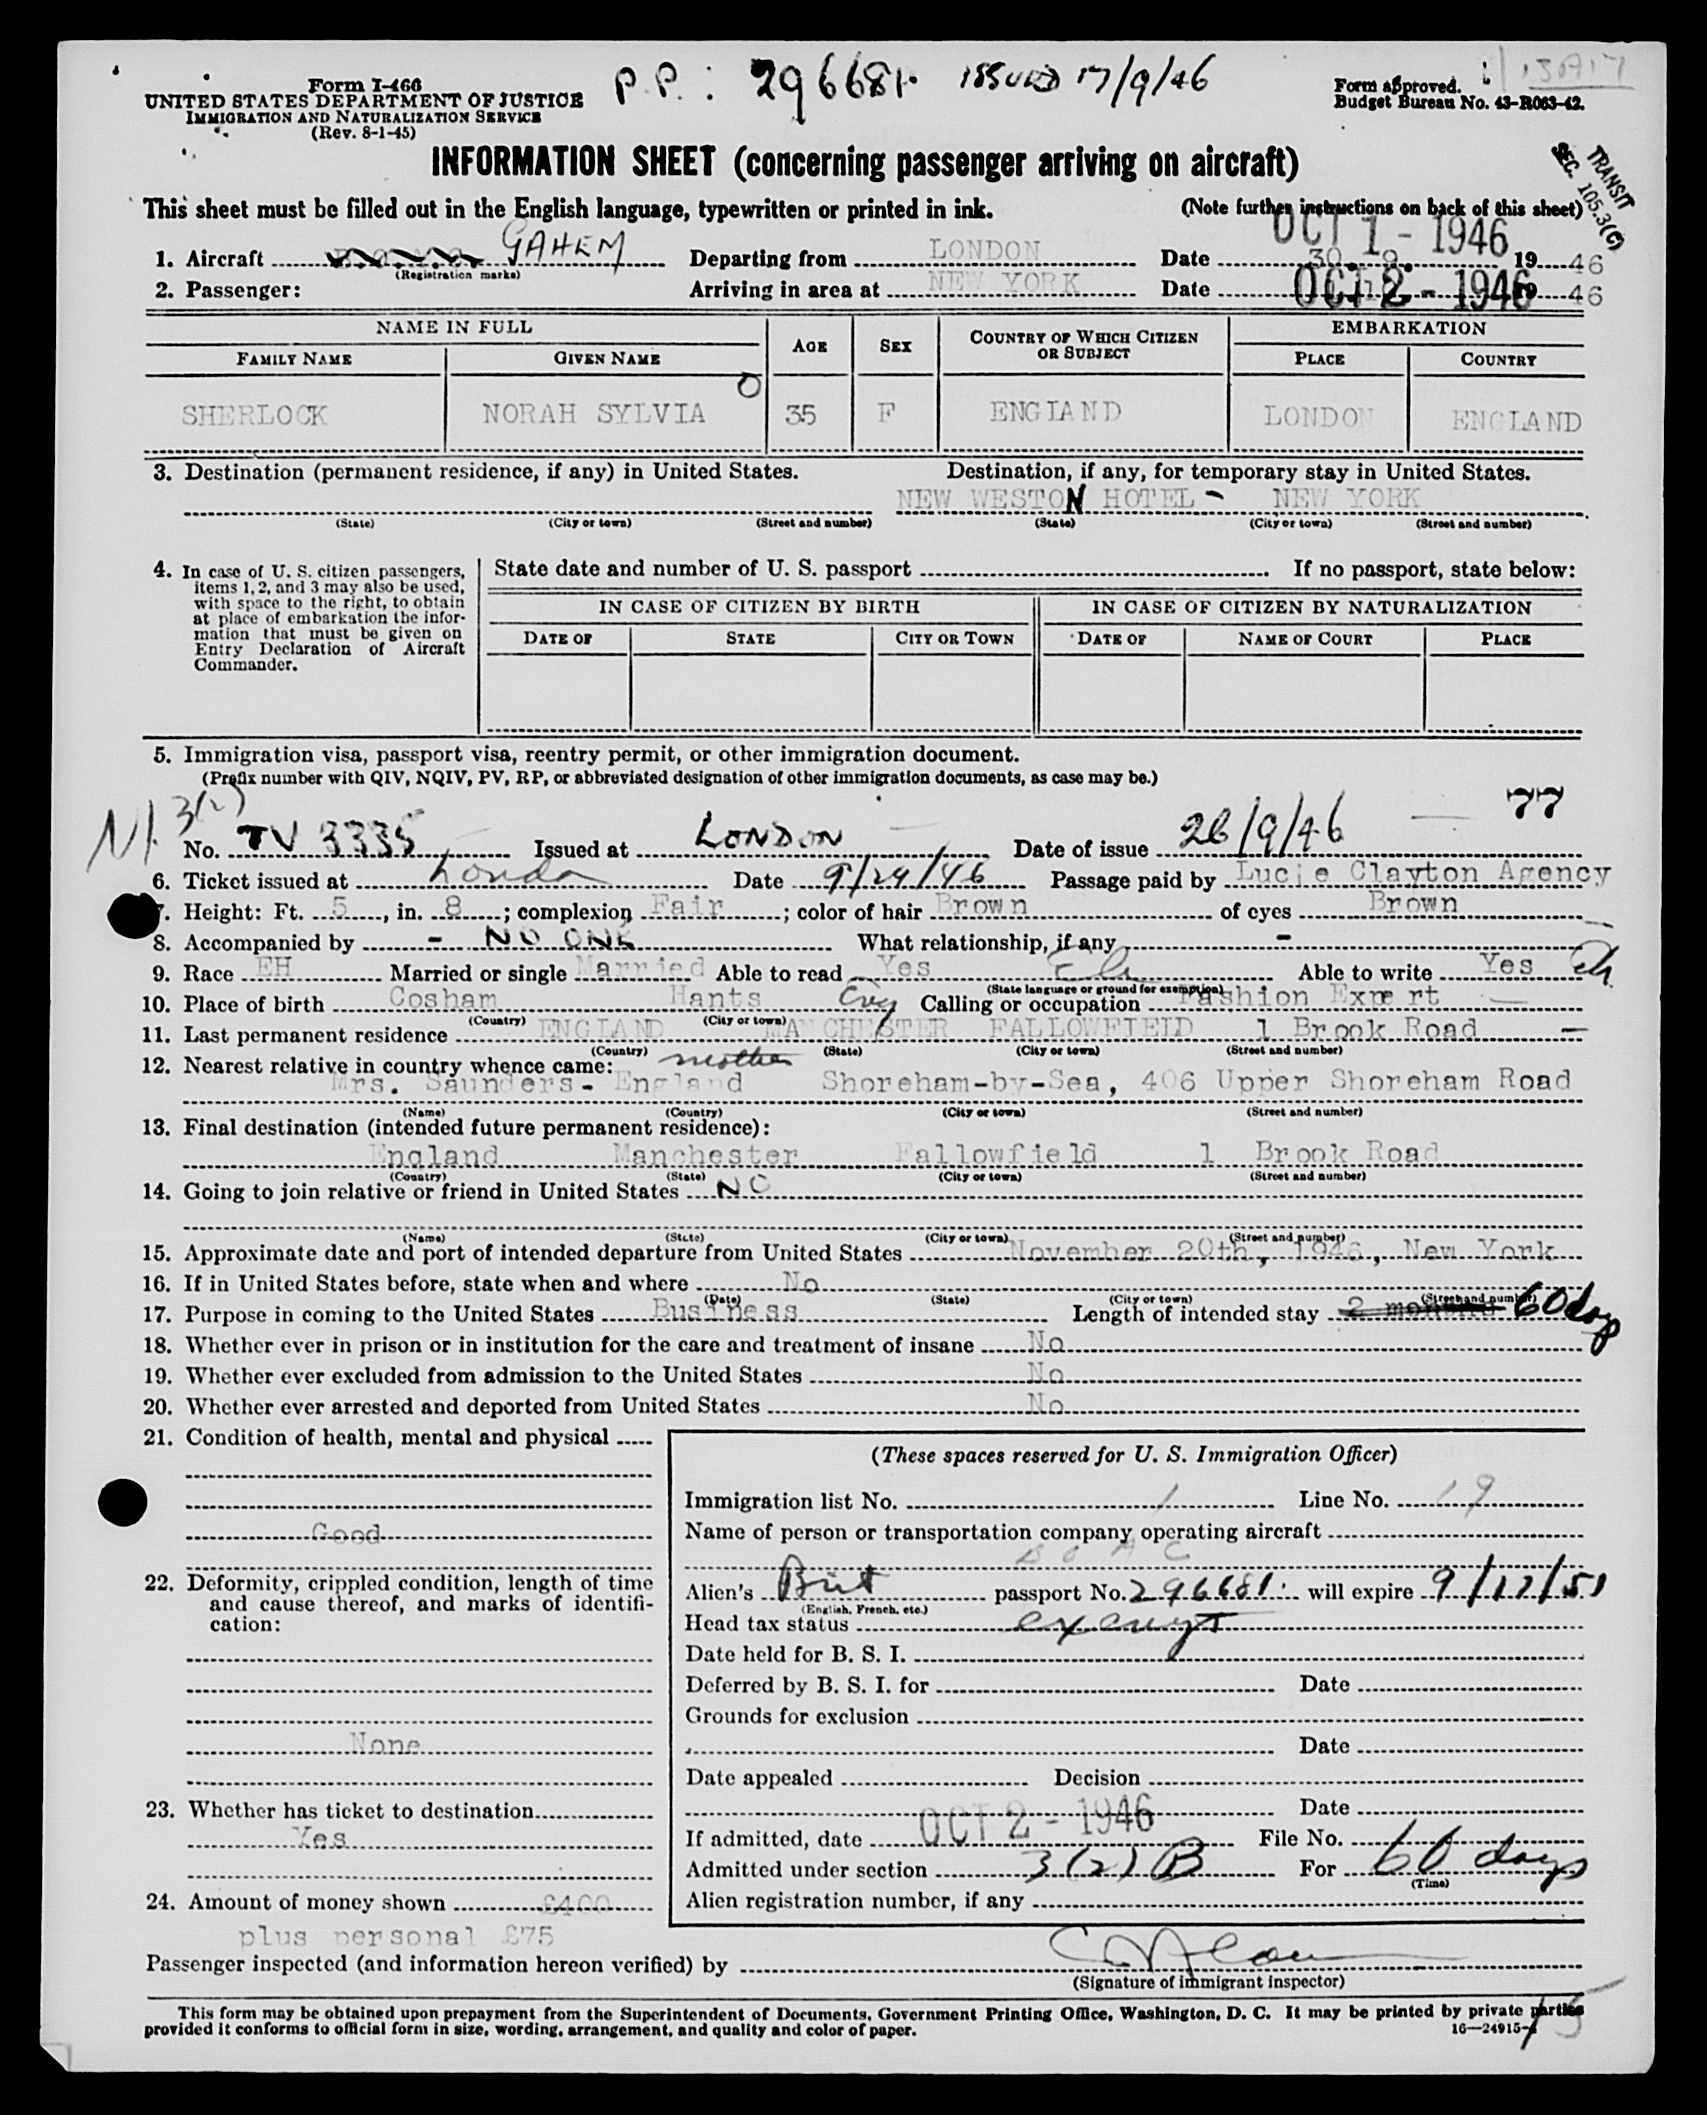 Form I-466
UNITED STATES DEPARTMENT OF JUSTICE
IMMIGRATION AND NATURALIZATION SERVICE
(Rev. 8-1-45)
P.P.: 296681. ISSUED 17/9/46
Form approved.
Budget Bureau No. 43-R063-42.
INFORMATION SHEET (concerning passenger arriving on aircraft)
TRANSIT
SEC. 105.3(C)
This sheet must be filled out in the English language, typewritten or printed in ink. (Note further instructions on back of this sheet)
OCT 1 - 1946
1. Aircraft GAHEM Departing from LONDON Date 30. 9. 1946
(Registration marks)
2. Passenger: Arriving in area at NEW YORK Date OCT 2 - 1946 1946
NAME IN FULL AGE SEX COUNTRY OF WHICH CITIZEN OR SUBJECT EMBARKATION
FAMILY NAME GIVEN NAME PLACE COUNTRY
SHERLOCK NORAH SYLVIA 35 F ENGLAND LONDON ENGLAND
3. Destination (permanent residence, if any) in United States. Destination, if any, for temporary stay in United States.
NEW WESTON HOTEL - NEW YORK
(State) (City or town) (Street and number) (State) (City or town) (Street and number)
4. In case of U. S. citizen passengers, items 1, 2, and 3 may also be used, with space to the right, to obtain at place of embarkation the information that must be given on Entry Declaration of Aircraft Commander.
State date and number of U. S. passport If no passport, state below:
IN CASE OF CITIZEN BY BIRTH IN CASE OF CITIZEN BY NATURALIZATION
DATE OF STATE CITY OR TOWN DATE OF NAME OF COURT PLACE
5. Immigration visa, passport visa, reentry permit, or other immigration document.
(Prefix number with QIV, NQIV, PV, RP, or abbreviated designation of other immigration documents, as case may be.)
3(2) 77
No. TV 3335 Issued at LONDON Date of issue 26/9/46
6. Ticket issued at London Date 9/24/46 Passage paid by Lucie Clayton Agency
7. Height: Ft. 5, in. 8; complexion Fair; color of hair Brown of eyes Brown
8. Accompanied by - NO ONE What relationship, if any -
9. Race EH Married or single Married Able to read Yes Able to write Yes
(State language or ground for exemption)
10. Place of birth Cosham Hants Eng Calling or occupation Fashion Expert
(Country) (City or town)
11. Last permanent residence ENGLAND MANCHESTER FALLOWFIELD 1 Brook Road
(Country) (State) (City or town) (Street and number)
12. Nearest relative in country whence came: mother
Mrs. Saunders - England Shoreham-by-Sea, 406 Upper Shoreham Road
(Name) (Country) (City or town) (Street and number)
13. Final destination (intended future permanent residence):
England Manchester Fallowfield 1 Brook Road
(Country) (State) (City or town) (Street and number)
14. Going to join relative or friend in United States NO
(Name) (State) (City or town) (Street and number)
15. Approximate date and port of intended departure from United States November 20th, 1946, New York
16. If in United States before, state when and where No
(Date) (State) (City or town) (Street and number)
17. Purpose in coming to the United States Business Length of intended stay 2 months 60 days
18. Whether ever in prison or in institution for the care and treatment of insane No
19. Whether ever excluded from admission to the United States No
20. Whether ever arrested and deported from United States No
21. Condition of health, mental and physical
Good
22. Deformity, crippled condition, length of time and cause thereof, and marks of identification:
None
23. Whether has ticket to destination
Yes
24. Amount of money shown £400
plus personal £75
(These spaces reserved for U. S. Immigration Officer)
Immigration list No. 1 Line No. 19
Name of person or transportation company operating aircraft
B O A C
Alien's Brit passport No. 296681 will expire 9/17/51
(English, French, etc.)
Head tax status exempt
Date held for B. S. I.
Deferred by B. S. I. for Date
Grounds for exclusion
Date
Date appealed Decision
Date
If admitted, date OCT 2 - 1946 File No.
Admitted under section 3(2) B For 60 days
(Time)
Alien registration number, if any
Passenger inspected (and information hereon verified) by
(Signature of immigrant inspector)
This form may be obtained upon prepayment from the Superintendent of Documents, Government Printing Office, Washington, D. C. It may be printed by private parties
provided it conforms to official form in size, wording, arrangement, and quality and color of paper. 16—24915-1